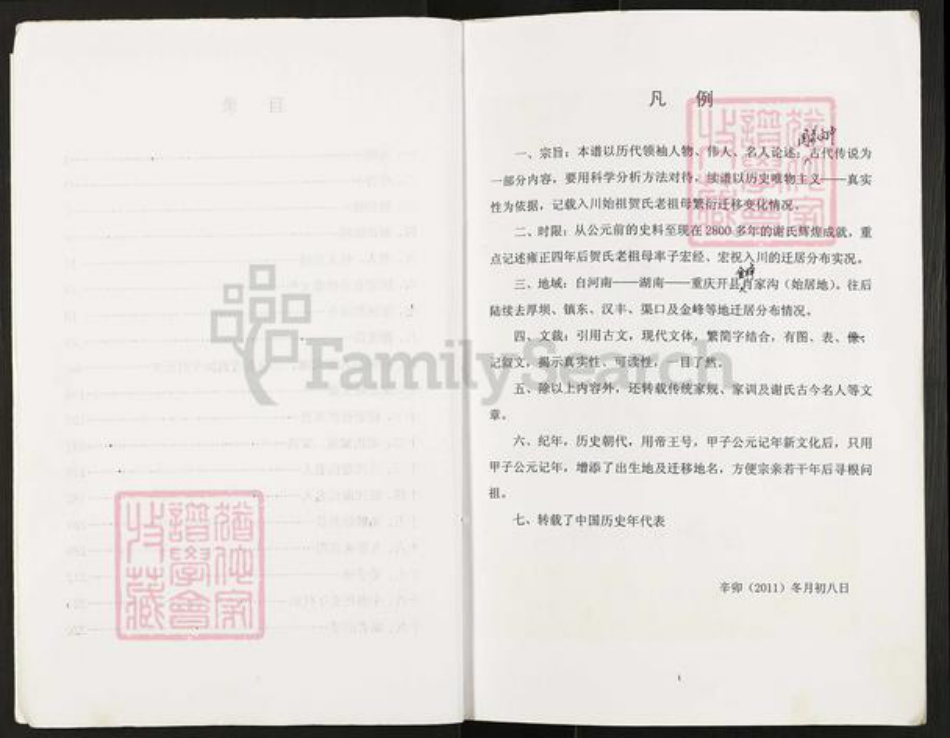 凡 例
一、宗旨：本谱以历代领袖人物、伟人、名人论述；古代传说为
一部分内容，要用科学分析方法对待，续谱以历史唯物主义——真实
性为依据，记载入川始祖贺氏老祖母繁衍迁移变化情况。
二、时限：从公元前的史料至现在2800多年的谢氏辉煌成就，重
点记述雍正四年后贺氏老祖母率子宏经、宏祝入川的迁居分布实况。
三、地域：自河南——湖南——重庆开县肖家沟（始居地）。往后
陆续去厚坝、镇东、汉丰、渠口及金峰等地迁居分布情况。
四、文裁：引用古文，现代文体，繁简字结合，有图、表、像、
记叙文，揭示真实性、可读性，一目了然。
五、除以上内容外，还转载传统家规、家训及谢氏古今名人等文
章。
六、纪年，历史朝代，用帝王号，甲子公元记年新文化后，只用
甲子公元记年，增添了出生地及迁移地名，方便宗亲若干年后寻根问
祖。
七、转载了中国历史年代表
辛卯（2011）冬月初八日
1
FamilySearch